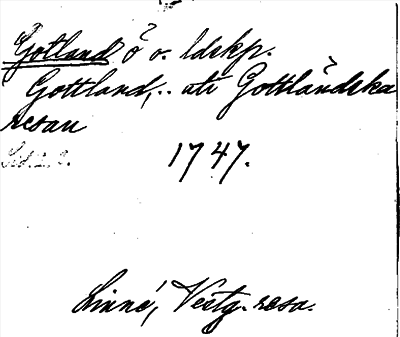 Gotland ö o. ldskp.
Gottland, .. uti Gottländska
resan
Sid. 2.
1747.
Linné, Vestg. resa.